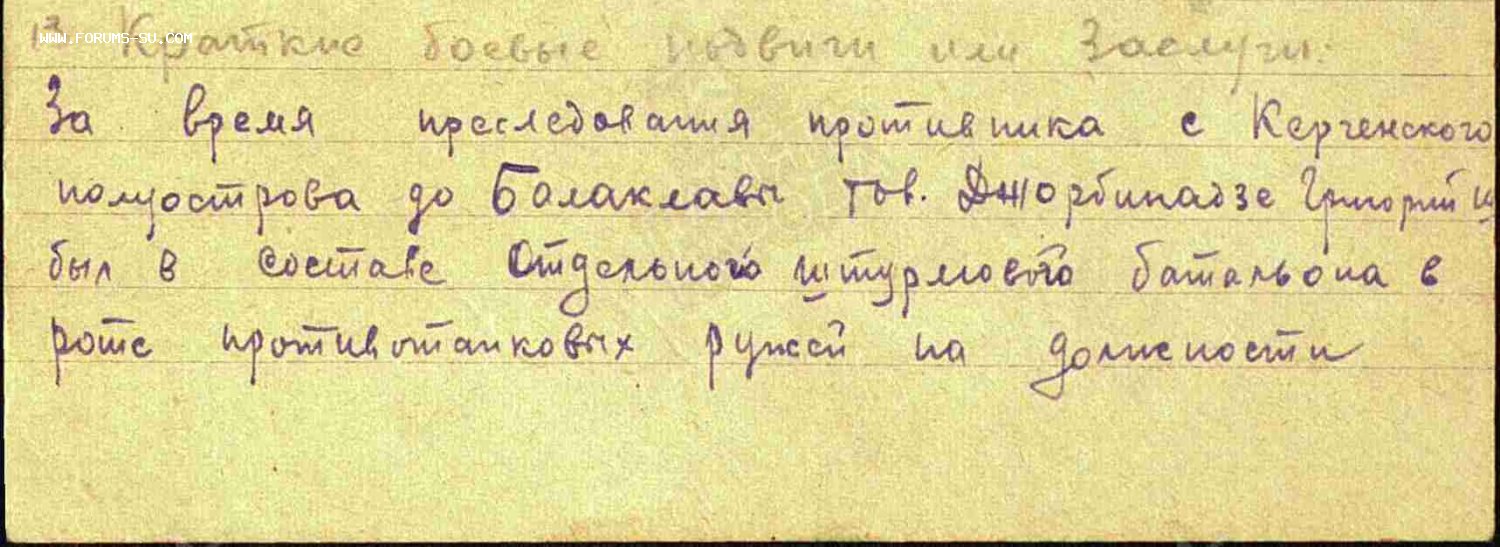 WWW.FORUMS-SU.COM
Краткие боевые подвиги или Заслуги:
За время преследования противника с Керченского
полуострова до Балаклавы тов. Джорбинадзе Григорий
был в составе Отдельного штурмового батальона в
роте противотанковых ружей на должности